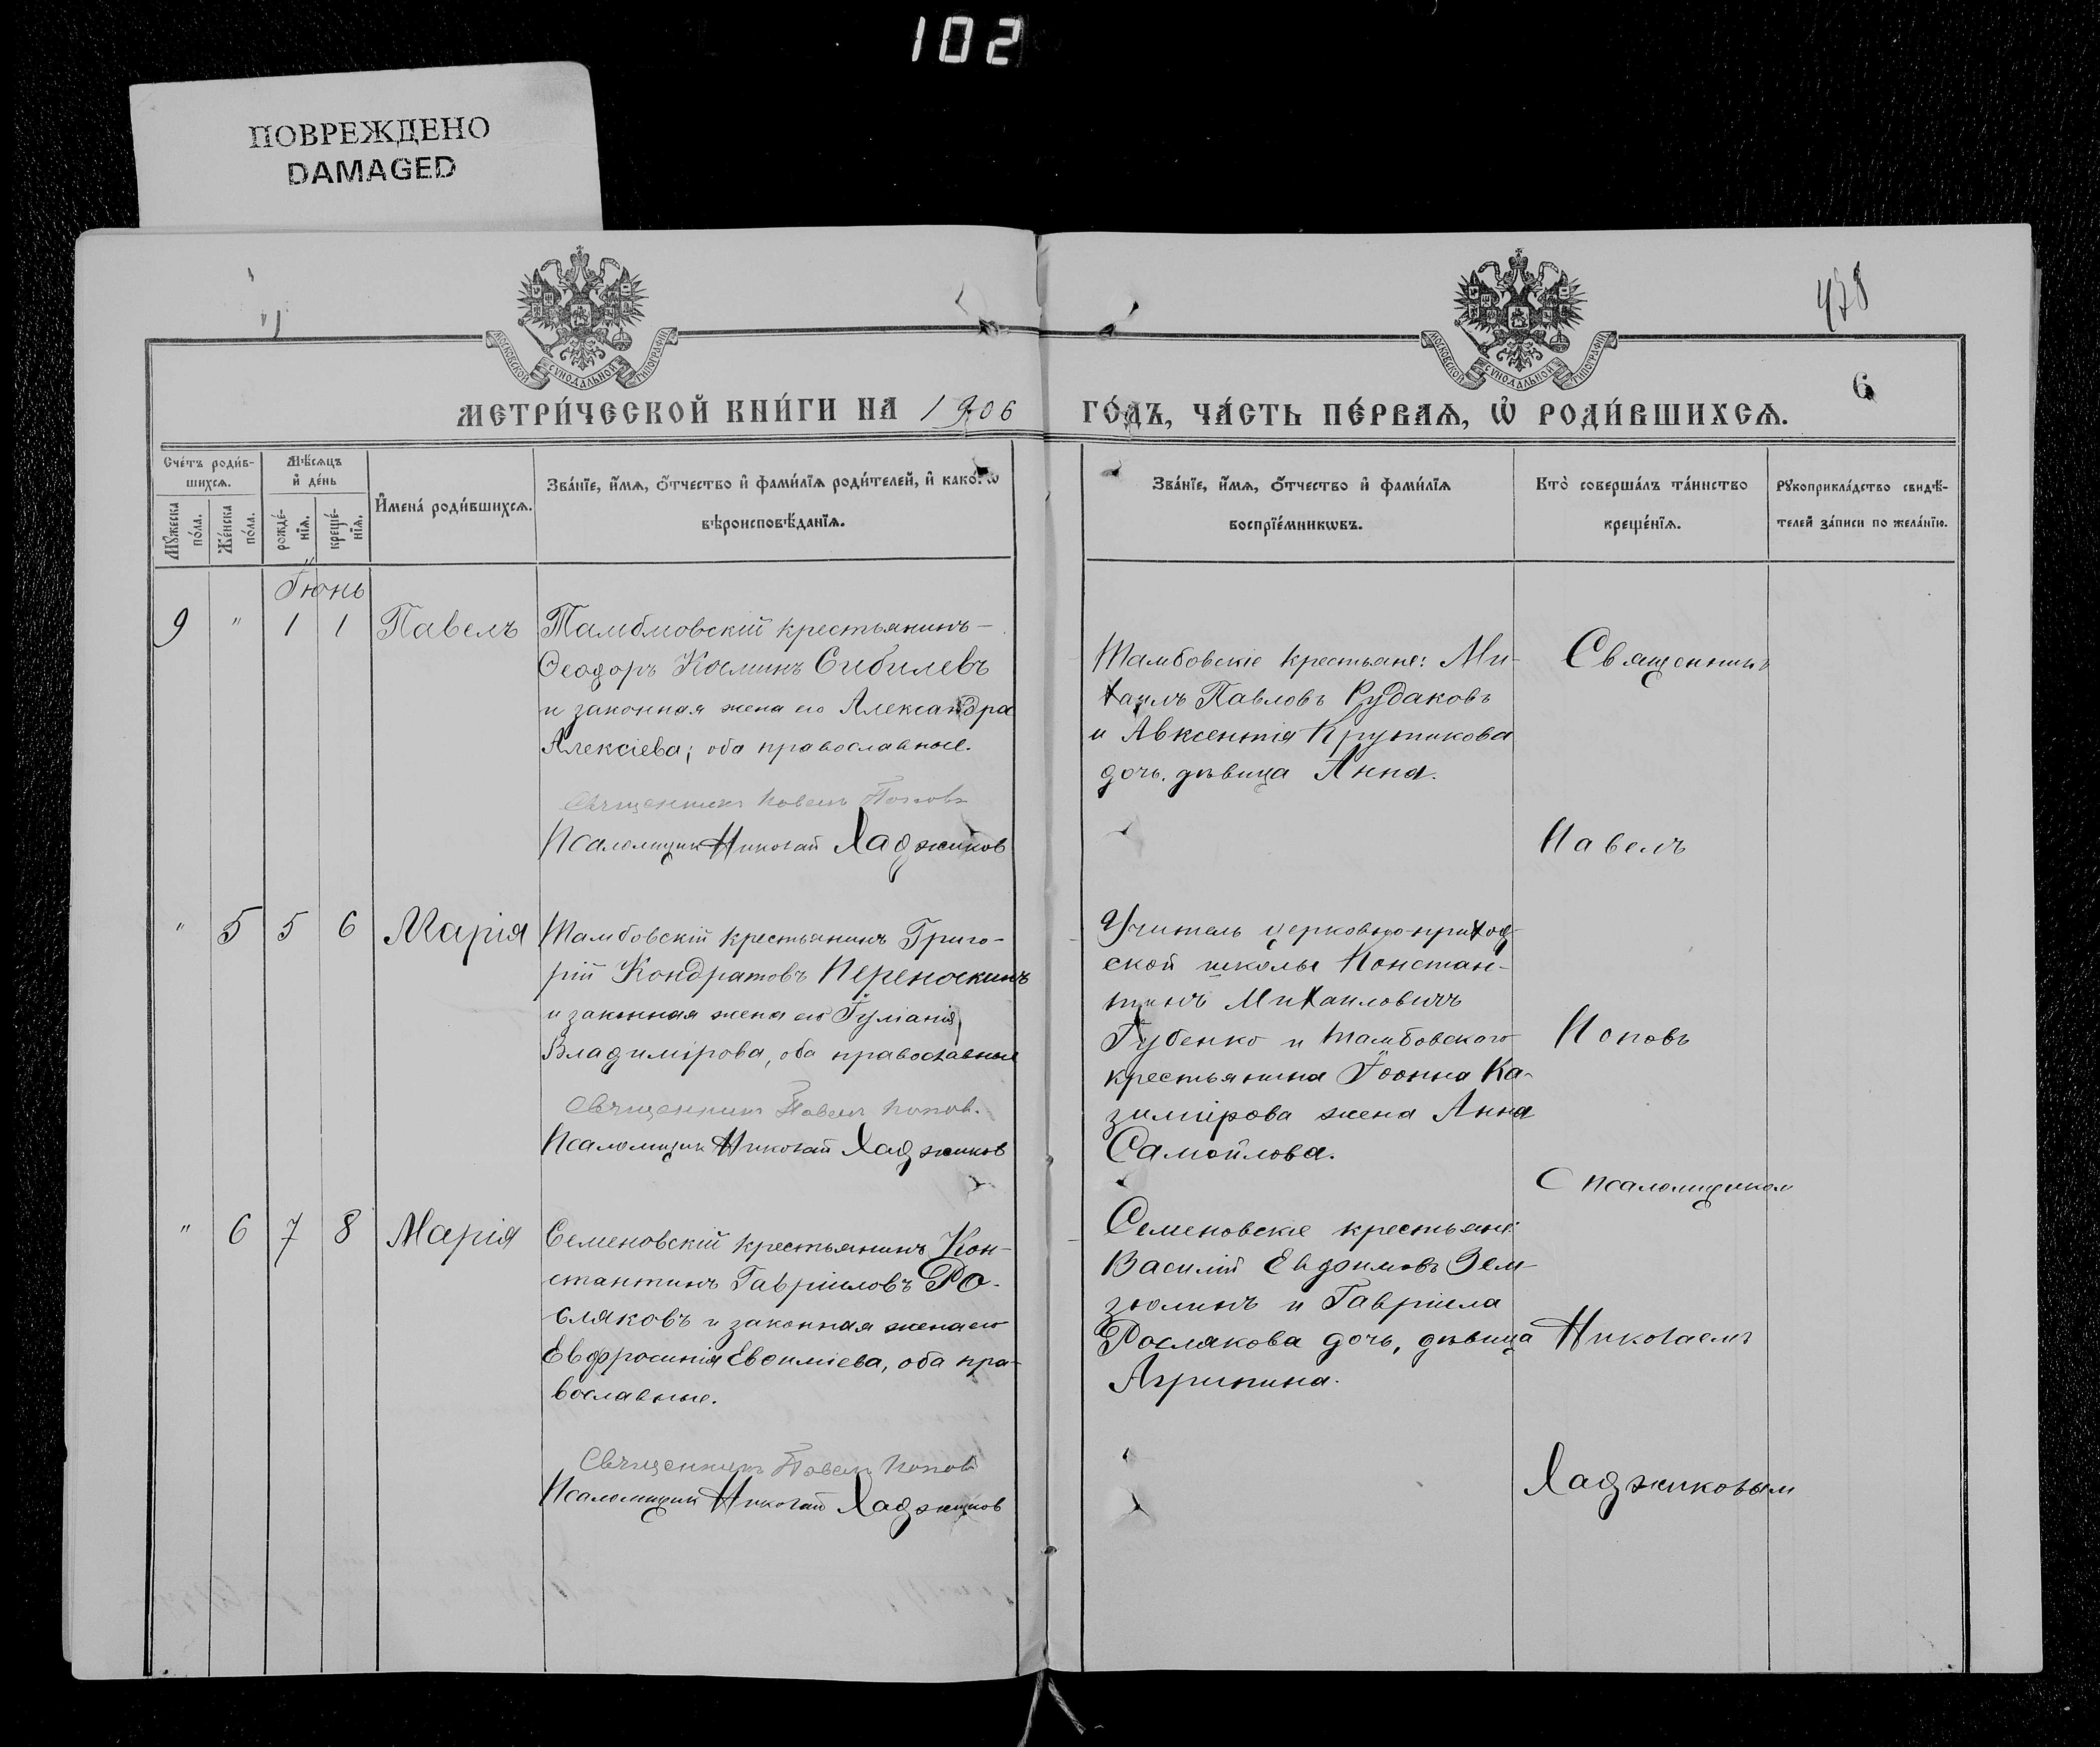 102
ПОВРЕЖДЕНО
DAMAGED
МОСКОВСКОЙ СѴНОДАЛЬНОЙ ТИПОГРАФІИ
МОСКОВСКОЙ СѴНОДАЛЬНОЙ ТИПОГРАФІИ
478
6
МЕТРИ́ЧЕСКОЙ КНИ́ГИ НА 1906
ГО́ДЪ, ЧА́СТЬ ПЕ́РВАѦ, Ѡ҆ РОДИ́ВШИХСѦ.
Сче́тъ роди́в-
шихсѧ.
Мꙋ́жеска
по́ла.
Же́нска
по́ла.
Мѣ́сѧцъ
и҆ де́нь
рожде́-
нїѧ.
креще́-
нїѧ.
И҆мена̀ роди́вшихсѧ.
Зва́нїе, и҆́мѧ, ѻ҆́тчество и҆ фами́лїѧ роди́телей, и҆ како́гѡ
вѣроисповѣ́данїѧ.
Зва́нїе, и҆́мѧ, ѻ҆́тчество и҆ фами́лїѧ
воспрїе́мникѡвъ.
Кто̀ соверша́лъ та́инство
креще́нїѧ.
Рꙋкоприкла́дство свидѣ́-
телей за́писи по жела́нїю.
Іюнь
9 " 1 1 Павелъ
Тамбмовскій крестьянинъ-
Ѳеодоръ Косминъ Сибилевъ
и законная жена его Александра
Алексіева; оба православные.
Священникъ Павелъ Попов
Псаломщик Николай Хаджиков
Тамбовскіе крестьяне: Ми-
хаилъ Павловъ Рудаковъ
и Авксентія Крутикова
дочь, дѣвица Анна.
Священникъ
Павелъ
" 5 5 6 Марія
Тамбовскій крестьянинъ Григо-
рій Кондратовъ Переноскинъ
и законная жена его Іуліанія
Владимірова, оба православные
Священникъ Павелъ Попов.
Псаломщик Николай Хаджиков
Учитель церковно-приход-
ской школы Констан-
тинъ Михаиловичъ
Губенко и тамбовского
крестьянина Іоанна Ка-
зимірова жена Анна
Самойлова.
Поповъ
С псаломщиком
" 6 7 8 Марія
Семеновскій крестьянинъ Кон-
стантинъ Гавріиловъ Ро-
сляковъ и законная жена его
Евфросинія Евѳиміева, оба пра-
вославные.
Священникъ Павелъ Попов
Псаломщик Николай Хаджиков
Семеновскіе крестьяне:
Василій Евдокимовъ Зем-
зюлинъ и Гавріила
Рослякова дочь, дѣвица
Агрипина.
Николаемъ
Хаджиковым